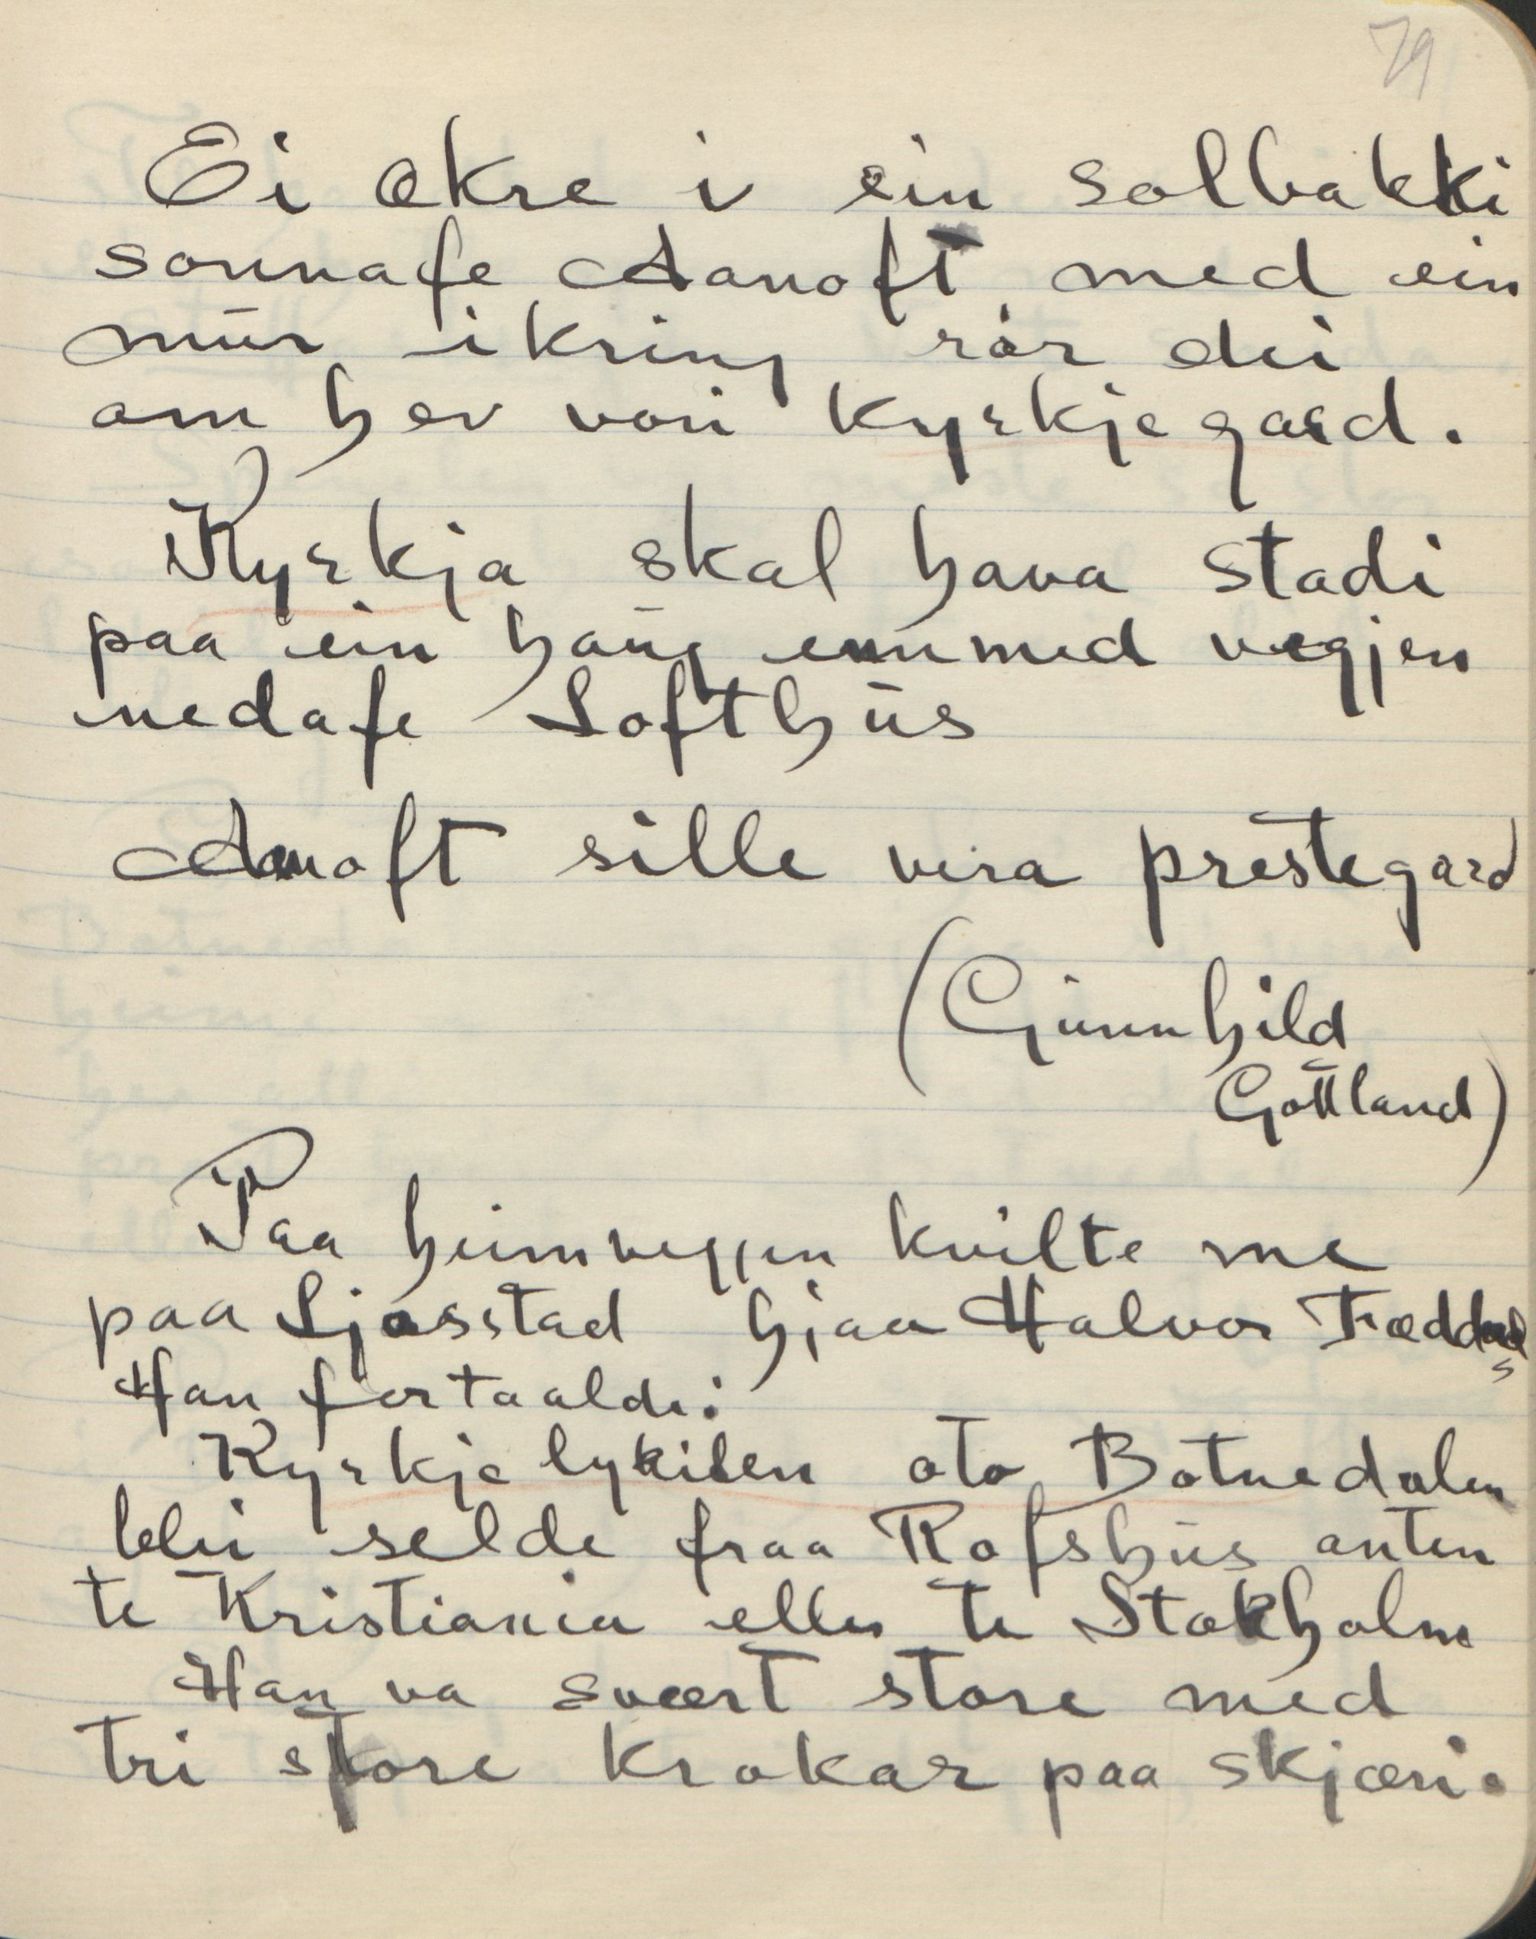 79
Ei økre i ein solbakki
sonnafe Aanoft med ein
mūr ikring rør dei
om hev vori Kyrkjegard.
Kyrkja skal hava stadi
paa ein haūg emmed vegjen
nedafe Lofthūs
Aanoft sille vera prestegard
(Gūnnhild
Gottland)
Paa heimvegjen kvilte me
paa Ljosstad hjaa Halvor
Han fortaalde:
Kyrkjelykilen oto Botnedalen
blei selde fraa Rofshūs anten
te Kristiania eller te Stokholm
Han va svært store med
tri store krokar paa skjæri.